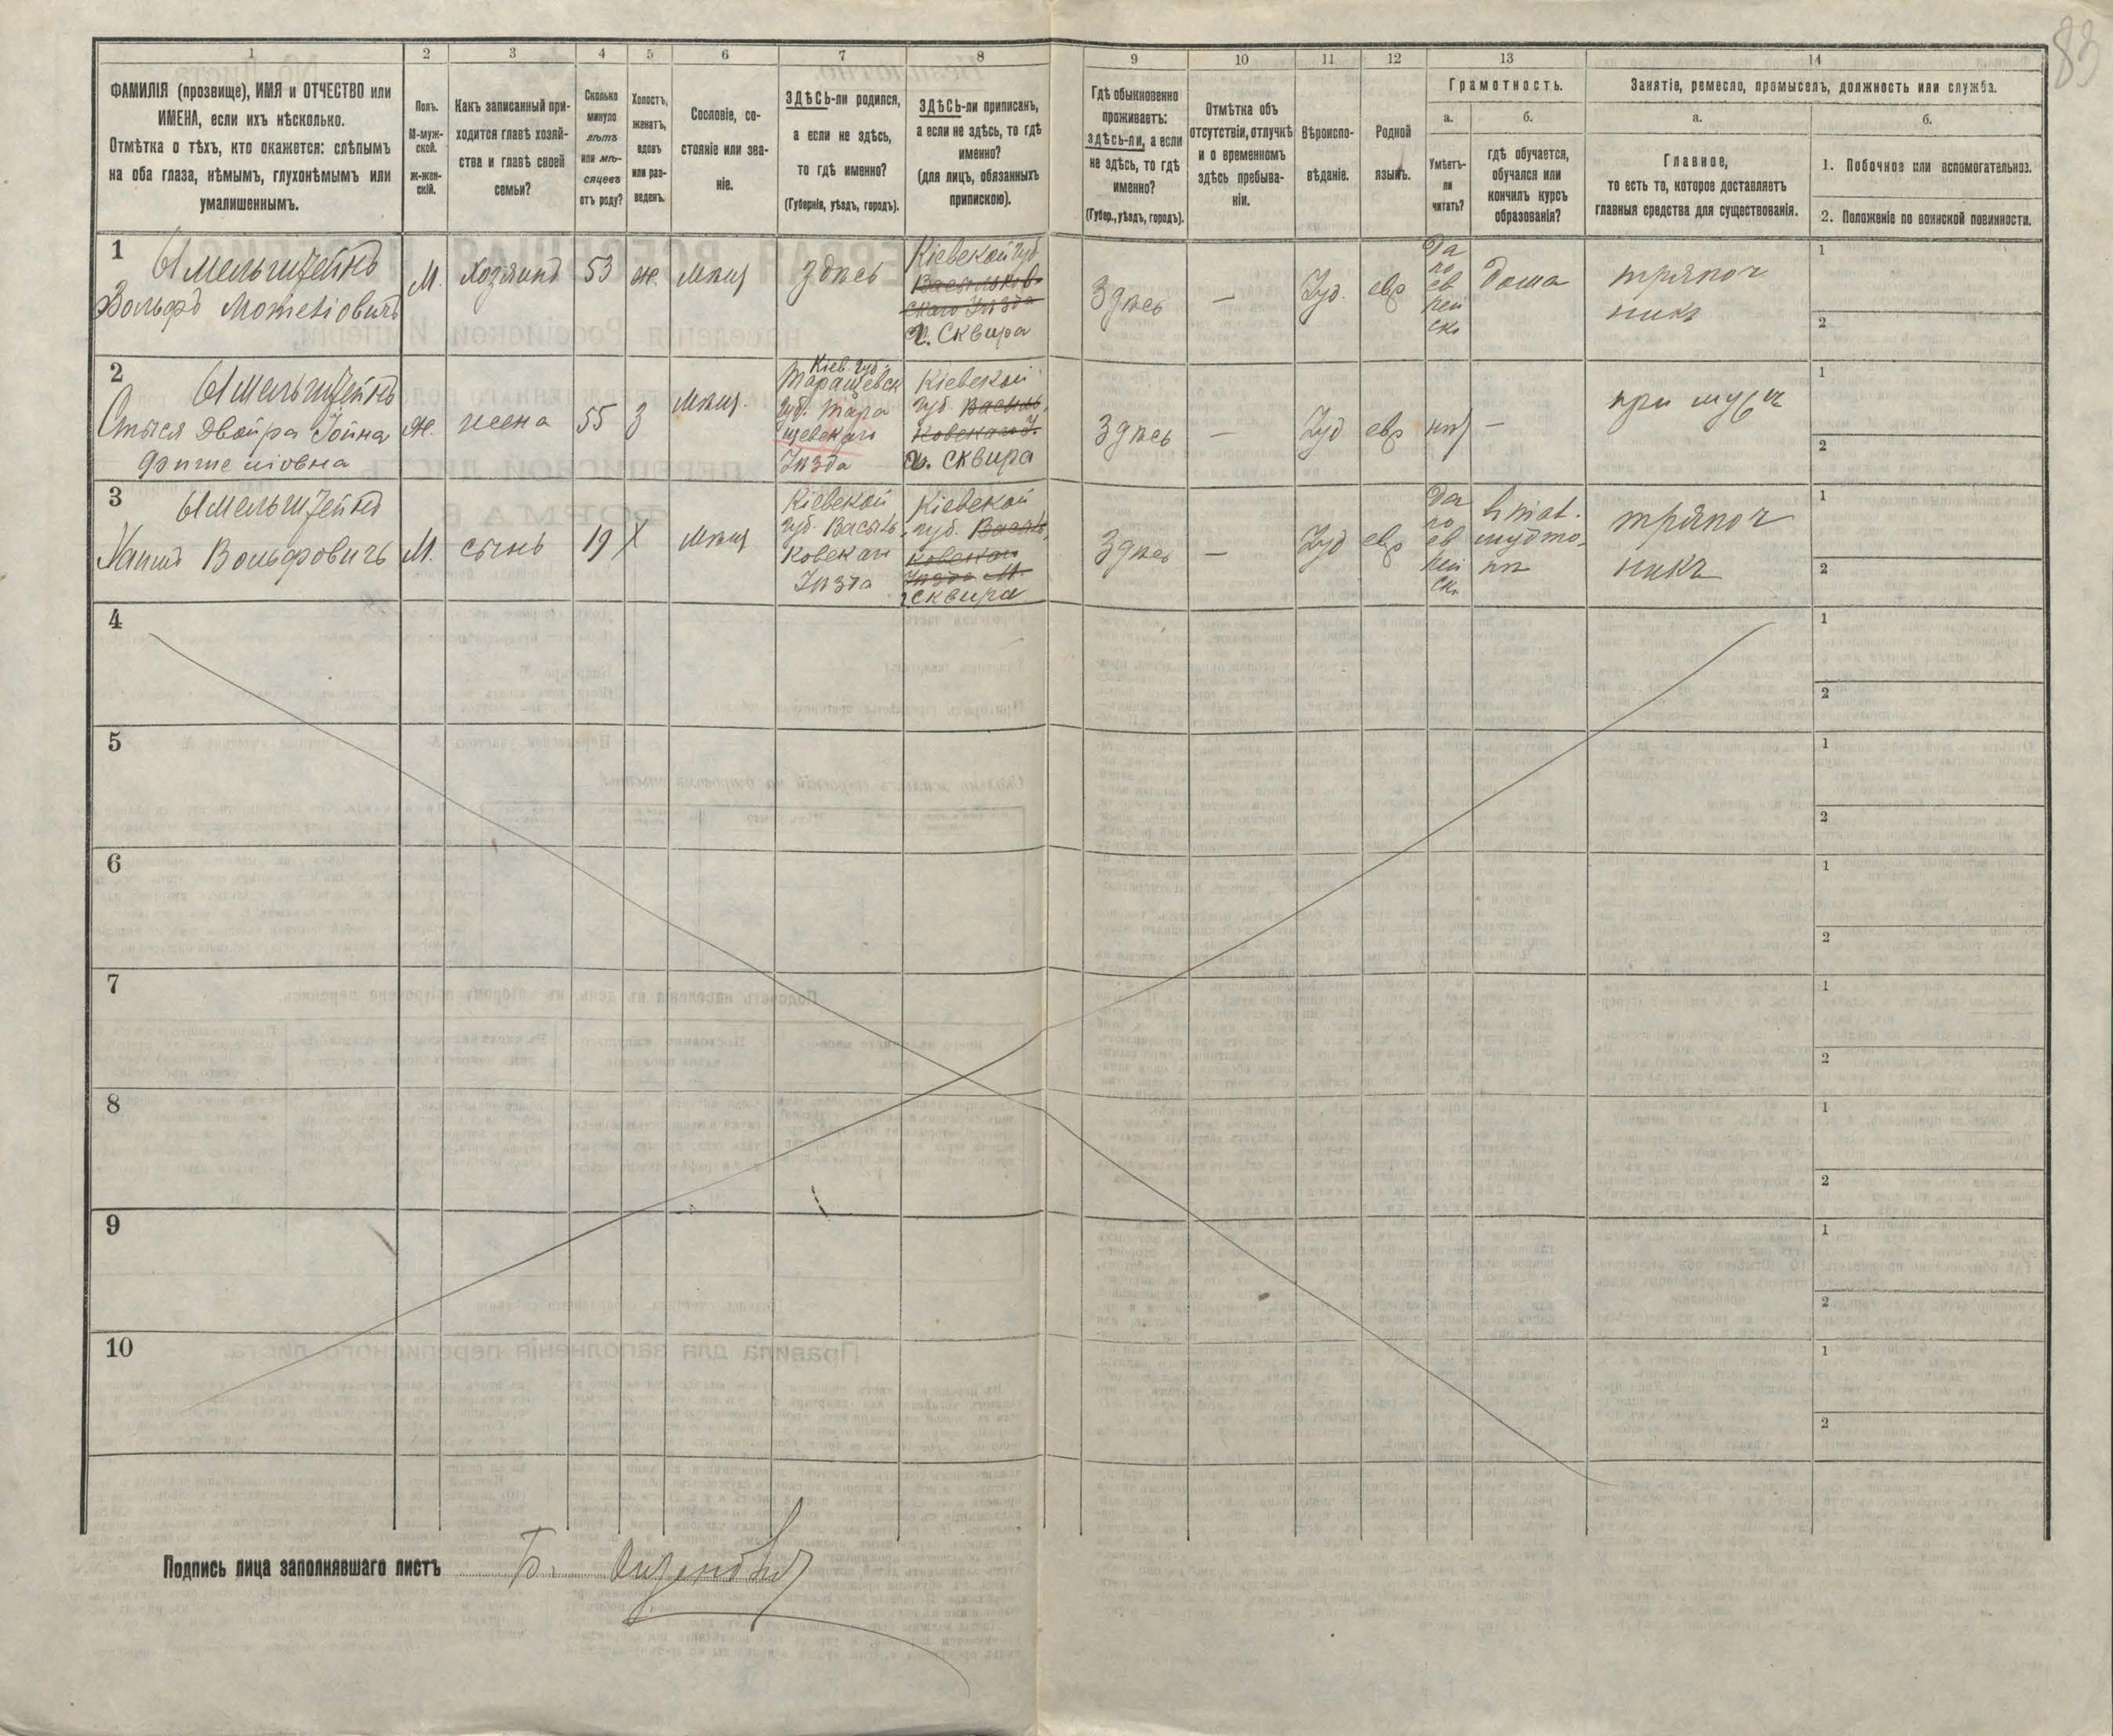 83
1
2
3
4
5
6
7
8
9
10
11
12
13
14
ФАМИЛІЯ (прозвище), ИМЯ и ОТЧЕСТВО или
ИМЕНА, если ихъ нѣсколько.
Отмѣтка о тѣхъ, кто окажется: слѣпымъ
на оба глаза, нѣмымъ, глухонѣмымъ или
умалишеннымъ.
Полъ.
М-муж-
ской.
Ж-жен-
скій.
Какъ записанный при-
ходится главѣ хозяй-
ства и главѣ своей
семьи?
Сколько
минуло
лѣтъ
или мѣ-
сяцевъ
отъ роду?
Холостъ,
женатъ,
вдовъ
или раз-
веденъ.
Сословіе, со-
стояніе или зва-
ніе.
ЗДѢСЬ-ли родился,
а если не здѣсь,
то гдѣ именно?
(Губернія, уѣздъ, городъ).
ЗДѢСЬ-ли приписанъ,
а если не здѣсь, то гдѣ
именно?
(для лицъ, обязанныхъ
припискою).
Гдѣ обыкновенно
проживаетъ:
здѣсь-ли, а если
не здѣсь, то гдѣ
именно?
(Губер., уѣздъ, городъ).
Отмѣтка объ
отсутствіи, отлучкѣ
и о временномъ
здѣсь пребыва-
ніи.
Вѣроиспо-
вѣданіе.
Родной
языкъ.
Грамотность.
а.
Умѣетъ-
ли
читать?
б.
гдѣ обучается,
обучался или
кончилъ курсъ
образованія?
Занятіе, ремесло, промыселъ, должность или служба.
а.
Главное,
то есть то, которое доставляетъ
главныя средства для существованія.
б.
1. Побочное или вспомогательное.
2. Положеніе по воинской повинности.
1
Вольфъ
М.
Хозяинъ
53
ж.
Мѣщ
здѣсь
Кіевской губ.
Васильков-
скаго Уѣзда
г. Сквира
Здѣсь
—
Іуд.
евр
Да
по
ев
рей
ск.
Дома
тряпоч
никъ
1
2
2
Двойра
ж.
жена
55
З
Мѣщ.
Кіев. губ.
Таращевск
губ. Тара
щевскаго
Уѣзда
Кіевской
губ. Василь
ковскаго У.
г. Сквира
Здѣсь
—
Іуд
евр
нѣт
—
при мужѣ
1
2
3
Хаимъ Вольфовичъ
М.
сынъ
19
Х
Мѣщ
Кіевской
губ. Василь
ковскаго
Уѣзда
Кіевской
губ. Василь
ковскаго
Уѣзда М.
Сквира
Здѣсь
—
Іуд
евр
Да
по
ев
рей
ск.
тряпоч
никъ
1
2
4
1
2
5
1
2
6
1
2
7
1
2
8
1
2
9
1
2
10
1
2
Подпись лица заполнявшаго листъ